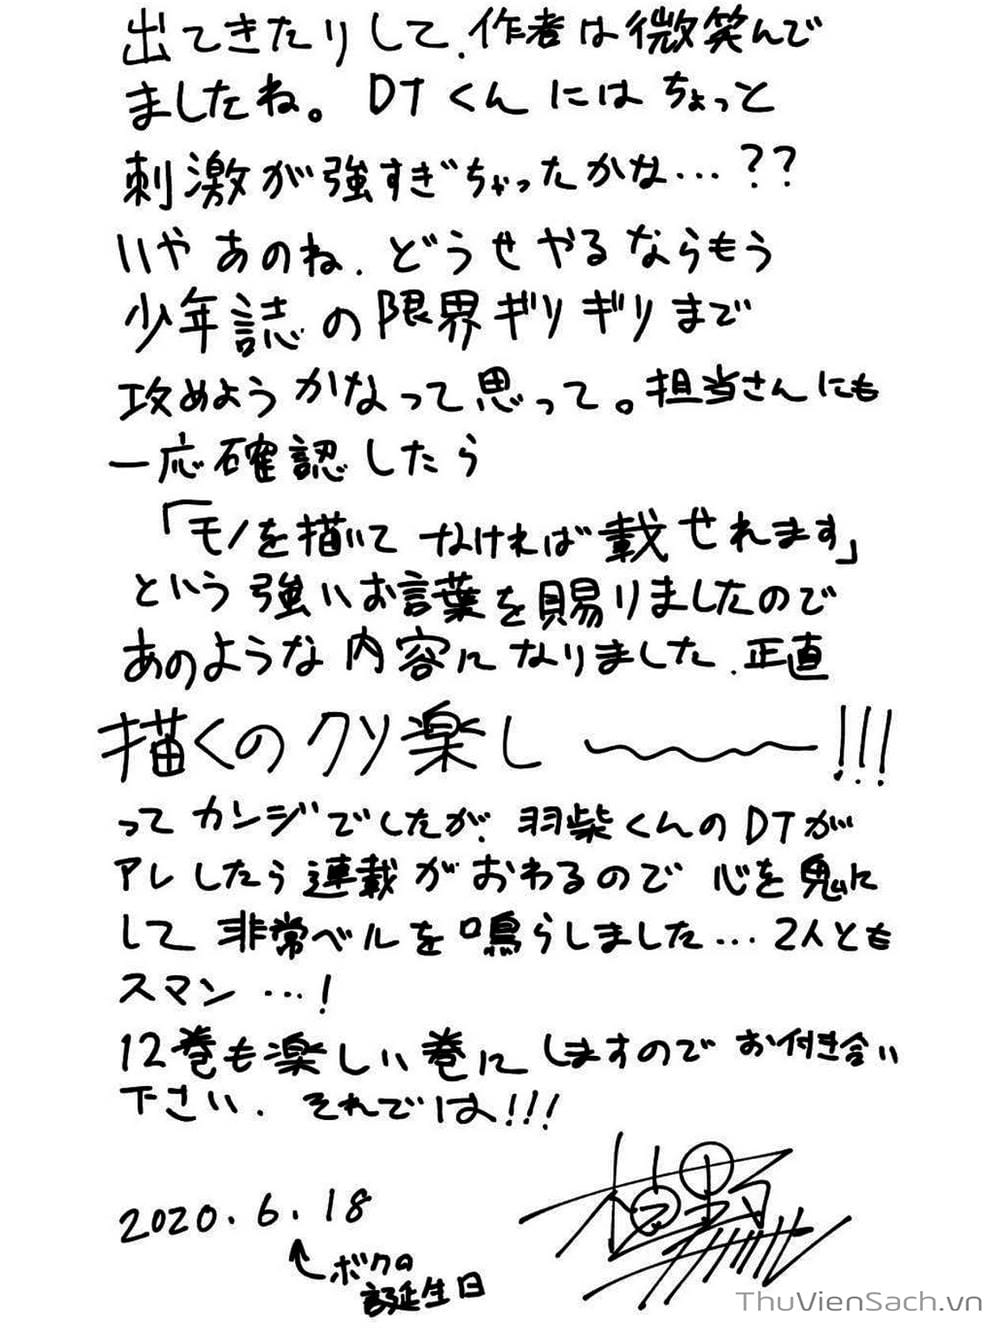 出てきたりして、作者は微笑んで
ましたね。DTくんにはちょっと
刺激が強すぎちゃったかな…??
いやあのね、どうせやるならもう
少年誌の限界ギリギリまで
攻めようかなって思って。担当さんにも
一応確認したら
「モノを描いてなければ載せれます」
という強いお言葉を賜りましたので
あのような内容になりました、正直
描くのクソ楽し〜〜〜!!!
ってカンジでしたが、羽柴くんのDTが
アレしたら連載がおわるので心を鬼に
して非常ベルを鳴らしました…2人とも
スマン…!
12巻も楽しい巻にしますのでお付き合い
下さい、それでは!!!
2020.6.18
ボクの
誕生日
ThuVienSach.vn